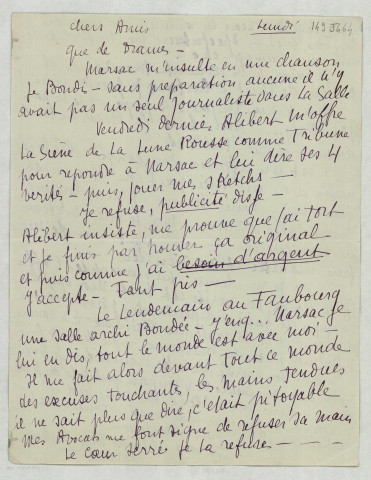 chers Amis Lundi 149 J464
que de Drames —
Marsac m'insulte en une chanson
Je Bondi - sans préparation aucune il n'y
avait pas un seul journaliste dans La Salle
Vendredi dernier Alibert m'offre
La Scène de La Lune Rousse comme Tribune
pour repondre à Marsac et lui dire ses 4
verités - puis, jouer mes sketchs -
Je refuse, publicité dis-je -
Alibert insiste, me prouve que j'ai tort
et je finis par trouver ça original
et puis comme j'ai besoin d'argent
j'accepte - Tant pis —
Le Lendemain au Faubourg
une salle archi Bondée - j'eng... Marsac je
lui en dis, tout le monde est avec moi -
Il me fait alors devant tout ce monde
des excuses touchantes, les mains tendues
il ne sait plus que dire, c'était pitoyable
mes Avocats me font signe de refuser sa main
Le cœur serré je la refuse - — —